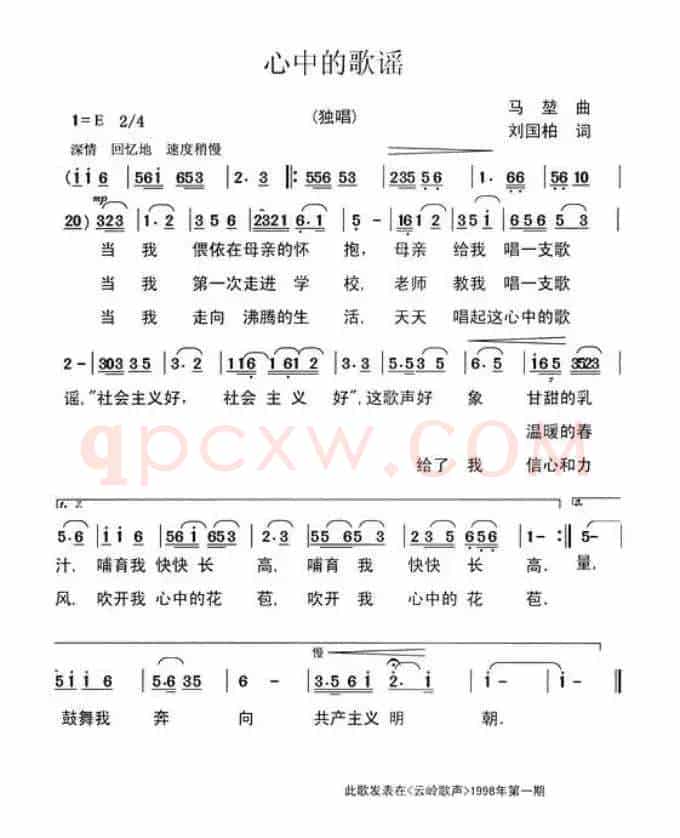 心中的歌谣
1=E 2/4
(独唱)
马堃 曲
刘国柏 词
深情 回忆地 速度稍慢
(i i 6 | 561 653 | 2·3 |: 556 53 | 235 56 | 1·66 | 56 10
mp
20) 323 | 1·2 | 356 | 2321 6·1 | 5 - | 161 2 | 35i | 656 5 3
当 我 偎依在母亲的怀 抱，母亲 给我 唱一支歌
当 我 第一次走进 学 校，老师 教我 唱一支歌
当 我 走向 沸腾的生 活，天天 唱起这心中的歌
2 - | 303 3 5 | 3·2 | 116 1 61 2 | 3·3 | 5·53 5 | 6·5 | i65 3523
谣，"社会主义好， 社会 主 义 好"，这歌声好 象 甘甜的乳
温暖的春
给了 我 信心和力
qpcxw.COM
1. 2.
3.
5·6 | i i 6 | 561 653 | 2·3 | 55 65 3 | 2·3 | 656 | 1 - :| 5 -
汁，哺育我 快快 长 高，哺育 我 快快 长 高. 量，
风，吹开我 心中的花 苞，吹开 我 心中的 花 苞.
慢
5i i 6 | 5·6 35 | 6 - | 3·5 61 | 2· i | i - | i -
鼓舞我 奔 向 共产主义 明 朝.
此歌发表在<云岭歌声>1998年第一期